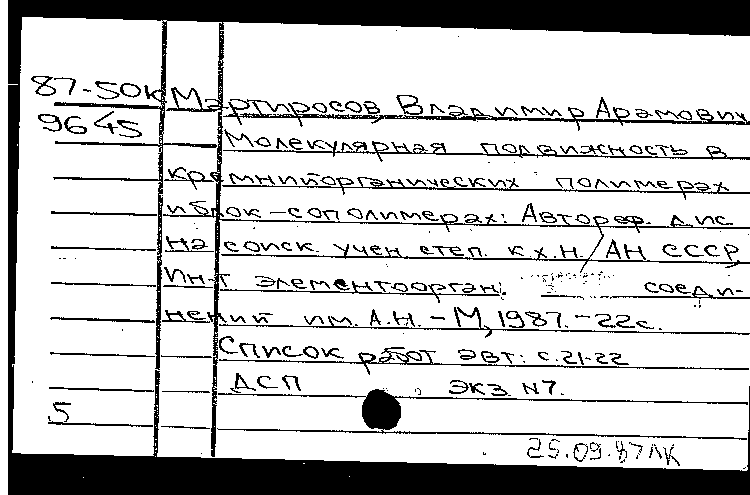 87-50к Мартиросов, Владимир Арамович
9645 Молекулярная подвижность в
кремнийорганических полимерах
и блок-сополимерах: Автореф. дис
на соиск. учен. степ. к.х.н. / АН СССР,
Ин-т элементоорган. соеди-
нений им. А.Н. - М, 1987. - 22с.
Список работ авт: с. 21-22
ДСП , экз N7.
5
25.09.87 ЛК